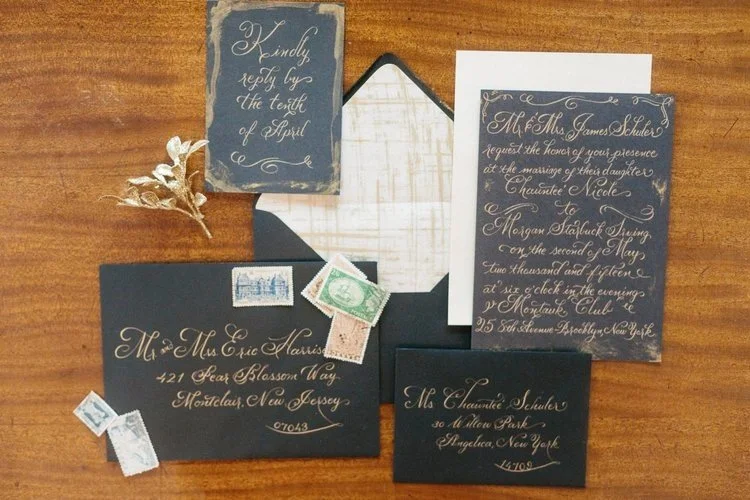 Kindly
reply by
the tenth
of April
Mr & Mrs James Schuler
request the honor of your presence
at the marriage of their daughter
Chauntée Nicole
to
Morgan Starbuck Irving
on the second of May
two thousand and fifteen
at six o'clock in the evening
Montauk Club
25 8th Avenue Brooklyn, New York
Mr and Mrs Eric Harrison
421 Pear Blossom Way
Montclair, New Jersey
07043
Ms Chauntée Schuler
30 Willow Park
Angelica, New York
14709